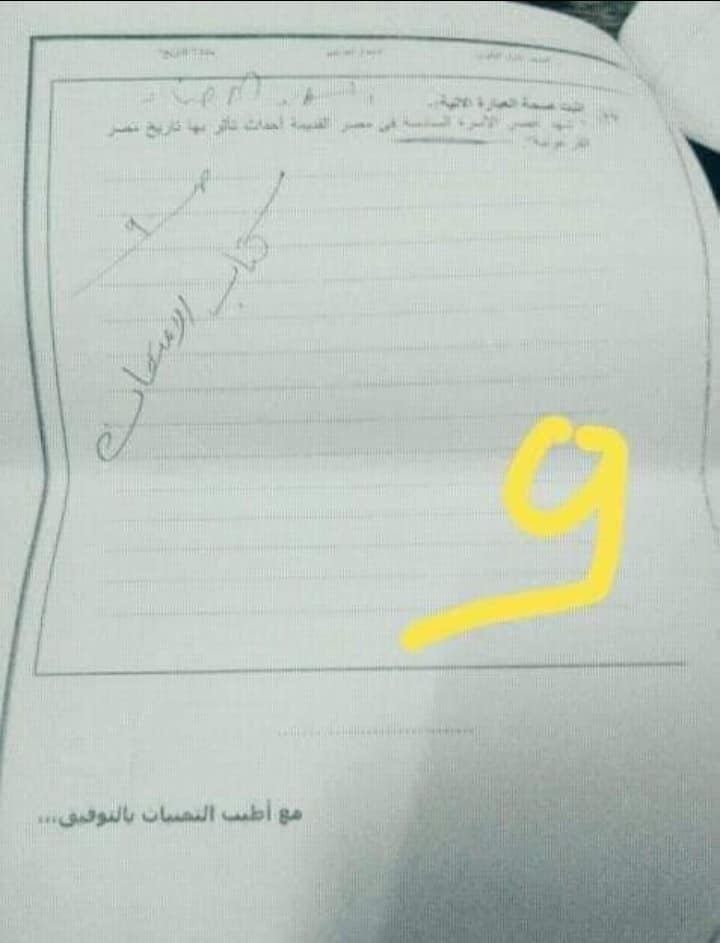 اثبت صحة العبارة الآتية..
" شهد عصر الأسرة السادسة في مصر القديمة أحداث تأثر بها تاريخ مصر
الفرعونية"
ص ٩
كتاب الامتحان
9
مع أطيب التمنيات بالتوفيق...